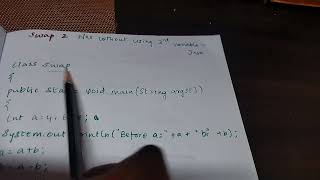 Swap 2 Nos without using 3rd
variable -
Java
class Swap
{
public void main(String args[])
{
int a=4,
System.out ln("Before a="+a+"b"+b);
a=a+b;
a-b;